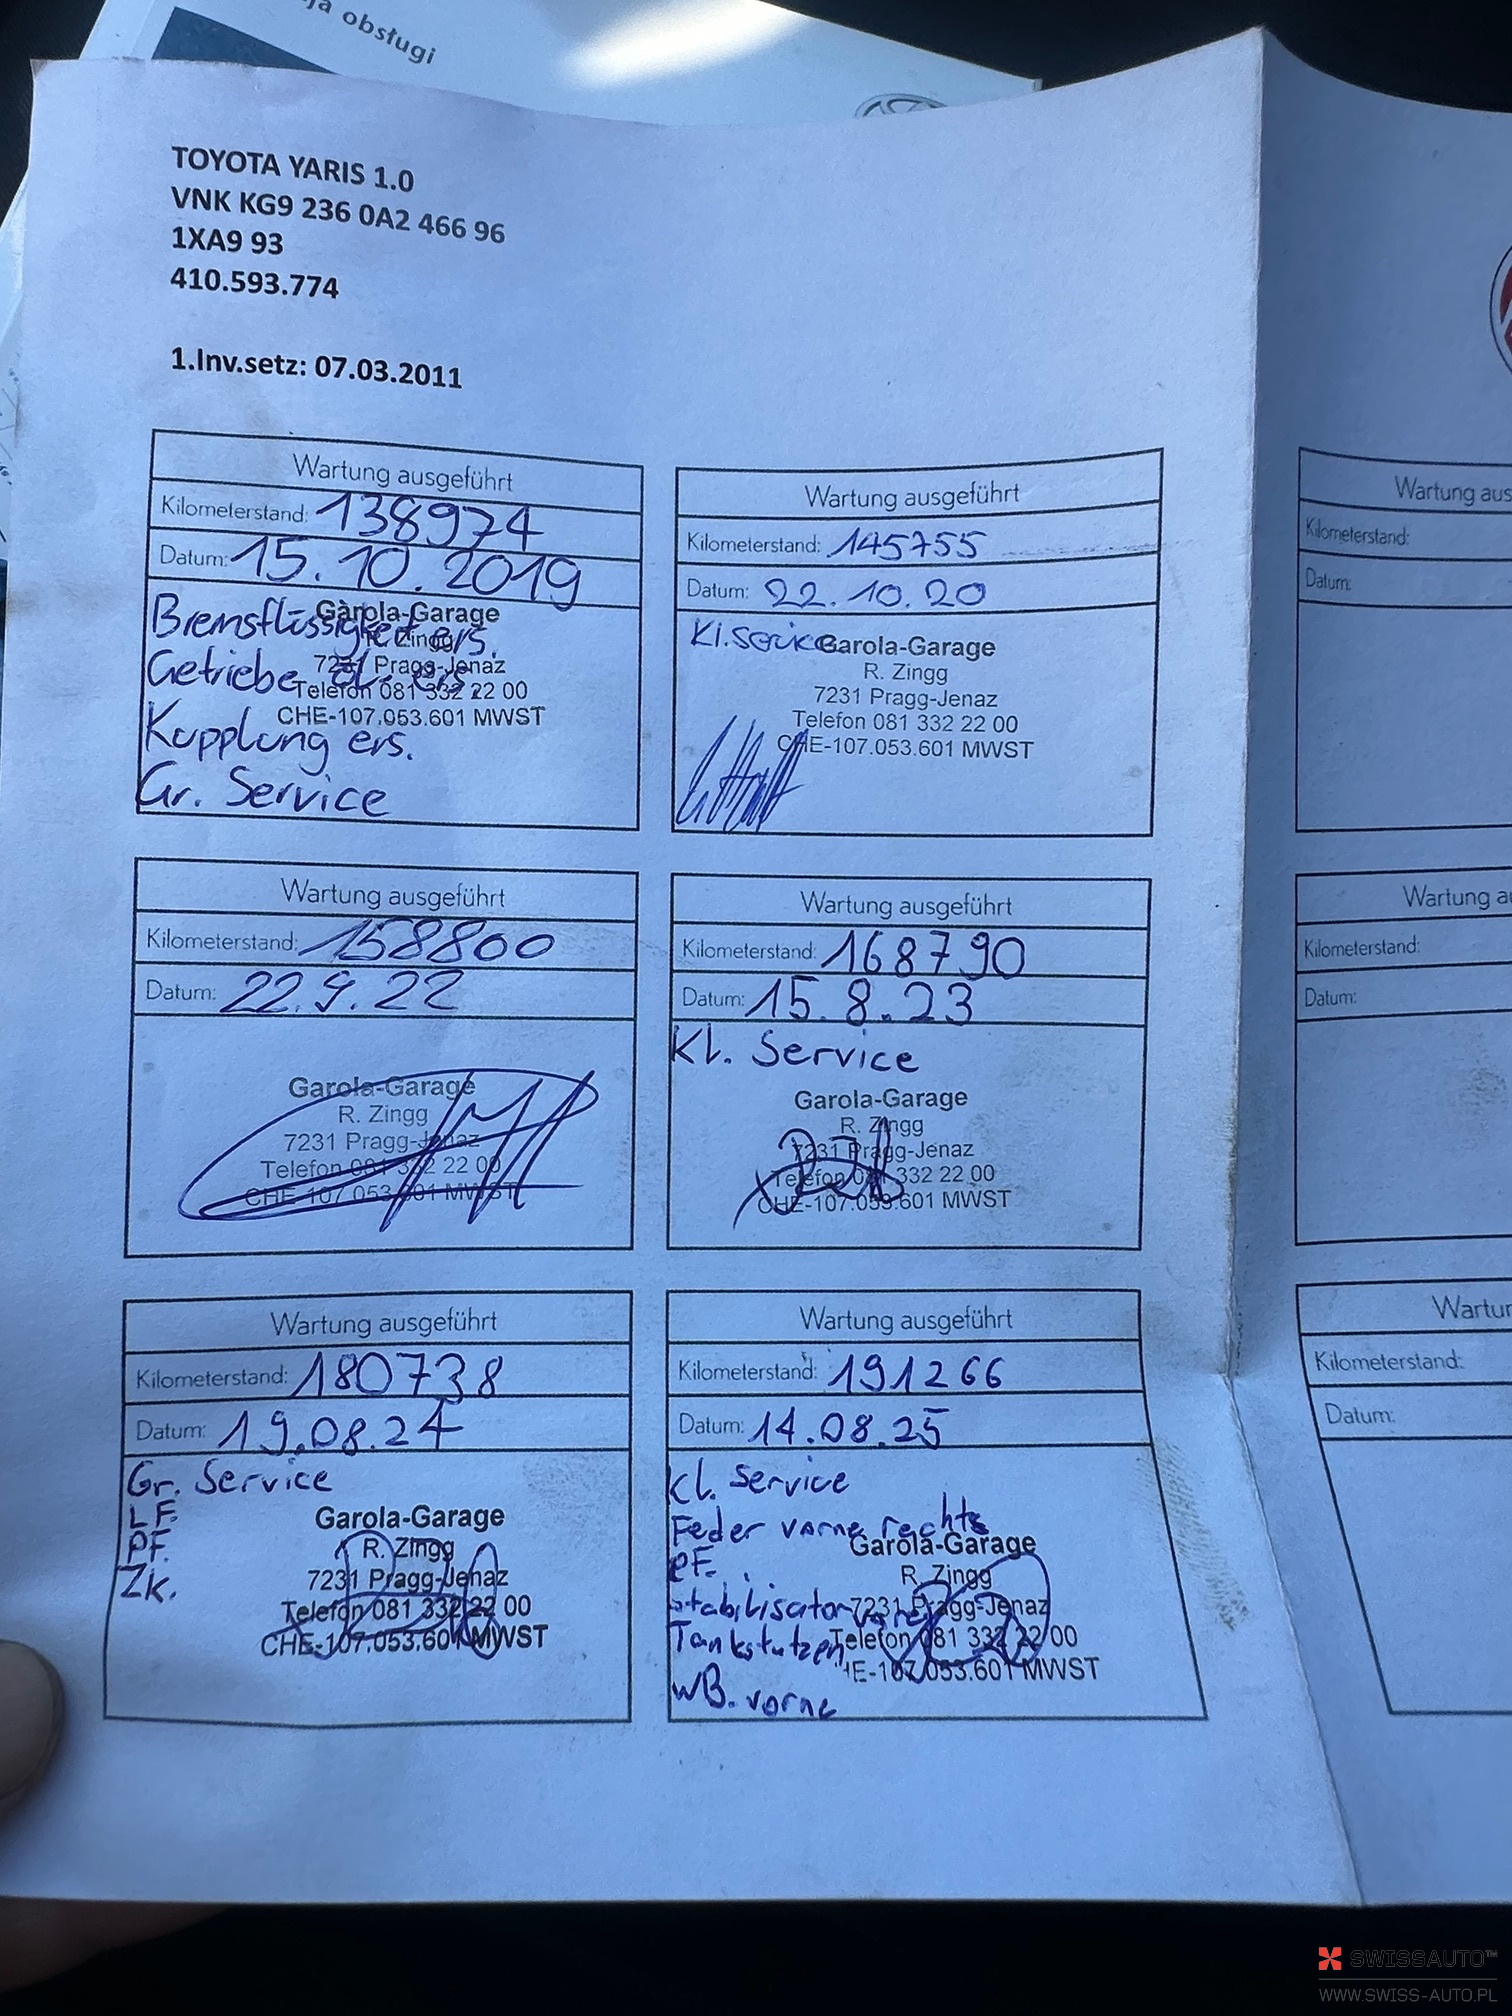 ja obsługi
TOYOTA YARIS 1.0
VNK KG9 236 0A2 466 96
1XA9 93
410.593.774
1.Inv.setz: 07.03.2011
Wartung ausgeführt
Kilometerstand: 138974
Datum: 15.10.2019
Bremsflüssigkeit ers.
Getriebe öl. ers
Kupplung ers.
Gr. Service
Garola-Garage
R. Zingg
7231 Pragg-Jenaz
Telefon 081 332 22 00
CHE-107.053.601 MWST
Wartung ausgeführt
Kilometerstand: 145755
Datum: 22.10.20
Kl. Service
Garola-Garage
R. Zingg
7231 Pragg-Jenaz
Telefon 081 332 22 00
CHE-107.053.601 MWST
Wartung ausgeführt
Kilometerstand: 158800
Datum: 22.9.22
Garola-Garage
R. Zingg
7231 Pragg-Jenaz
Telefon 081 332 22 00
CHE-107.053.601 MWST
Wartung ausgeführt
Kilometerstand: 168790
Datum: 15.8.23
Kl. Service
Garola-Garage
R. Zingg
7231 Pragg-Jenaz
Telefon 081 332 22 00
CHE-107.053.601 MWST
Wartung ausgeführt
Kilometerstand: 180738
Datum: 19.08.24
Gr. Service
LF.
PF.
Zk.
Garola-Garage
R. Zingg
7231 Pragg-Jenaz
Telefon 081 332 22 00
CHE-107.053.601 MWST
Wartung ausgeführt
Kilometerstand: 191266
Datum: 14.08.25
Kl. Service
Feder vorne rechts
PF.
Stabilisator vorne
Tankstutzen
WB. vorne
Garola-Garage
R. Zingg
7231 Pragg-Jenaz
Telefon 081 332 22 00
HE-107.053.601 MWST
Wartung aus
Kilometerstand:
Datum:
Wartung a
Kilometerstand:
Datum:
Wartu
Kilometerstand:
Datum:
SWISSAUTO™
WWW.SWISS-AUTO.PL